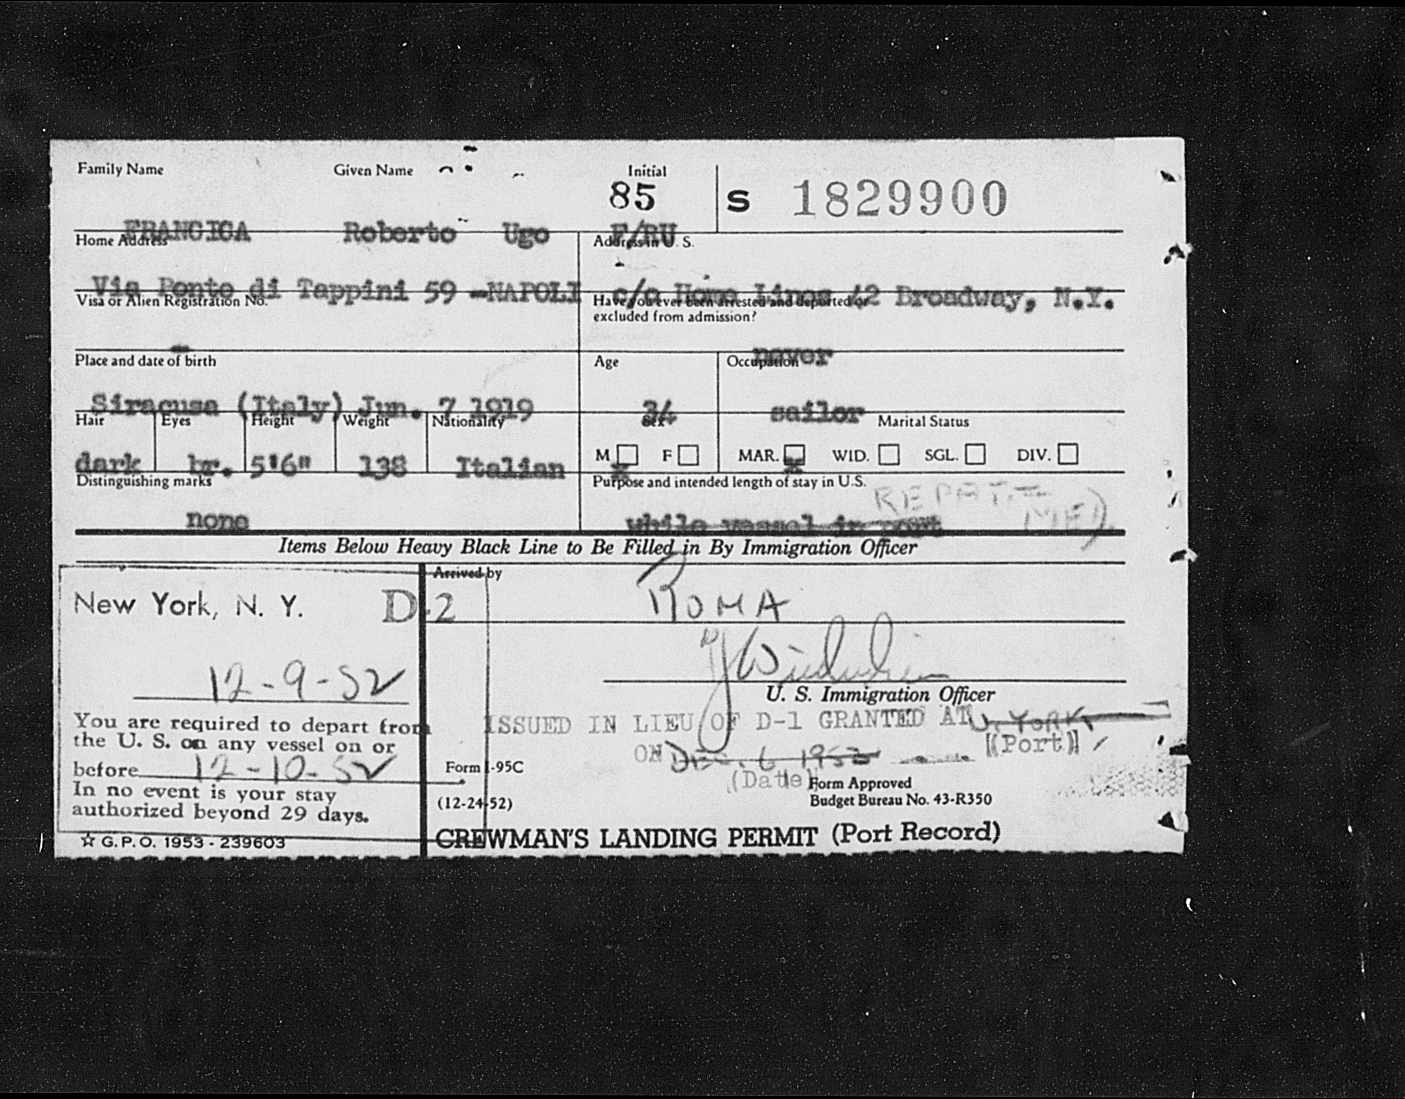 Family Name Given Name Initial
85 S 1829900
FRANCICA Roberto Ugo F/RU
Home Address Address in U. S.
Via Ponte di Tappini 59 -NAPOLI c/o Home Lines 42 Broadway, N.Y.
Visa or Alien Registration No. Have you ever been arrested and deported or
excluded from admission?
-
never
Place and date of birth Age Occupation
Siracusa (Italy) Jun. 7 1919 34 sailor
Hair Eyes Height Weight Nationality Sex Marital Status
M F MAR. WID. SGL. DIV.
dark br. 5'6" 138 Italian x x
Distinguishing marks Purpose and intended length of stay in U.S.
none while vessel in port
Items Below Heavy Black Line to Be Filled in By Immigration Officer
Arrived by
New York, N. Y. D-2 ROMA
12-9-52
U. S. Immigration Officer
You are required to depart from
the U. S. on any vessel on or
before 12-10-52
In no event is your stay
authorized beyond 29 days.
ISSUED IN LIEU OF D-1 GRANTED AT N. YORK
(Port)
ON DEC. 6 1953
(Date)
Form I-95C
(12-24-52)
Form Approved
Budget Bureau No. 43-R350
☆ G.P.O. 1953 - 239603
CREWMAN'S LANDING PERMIT (Port Record)